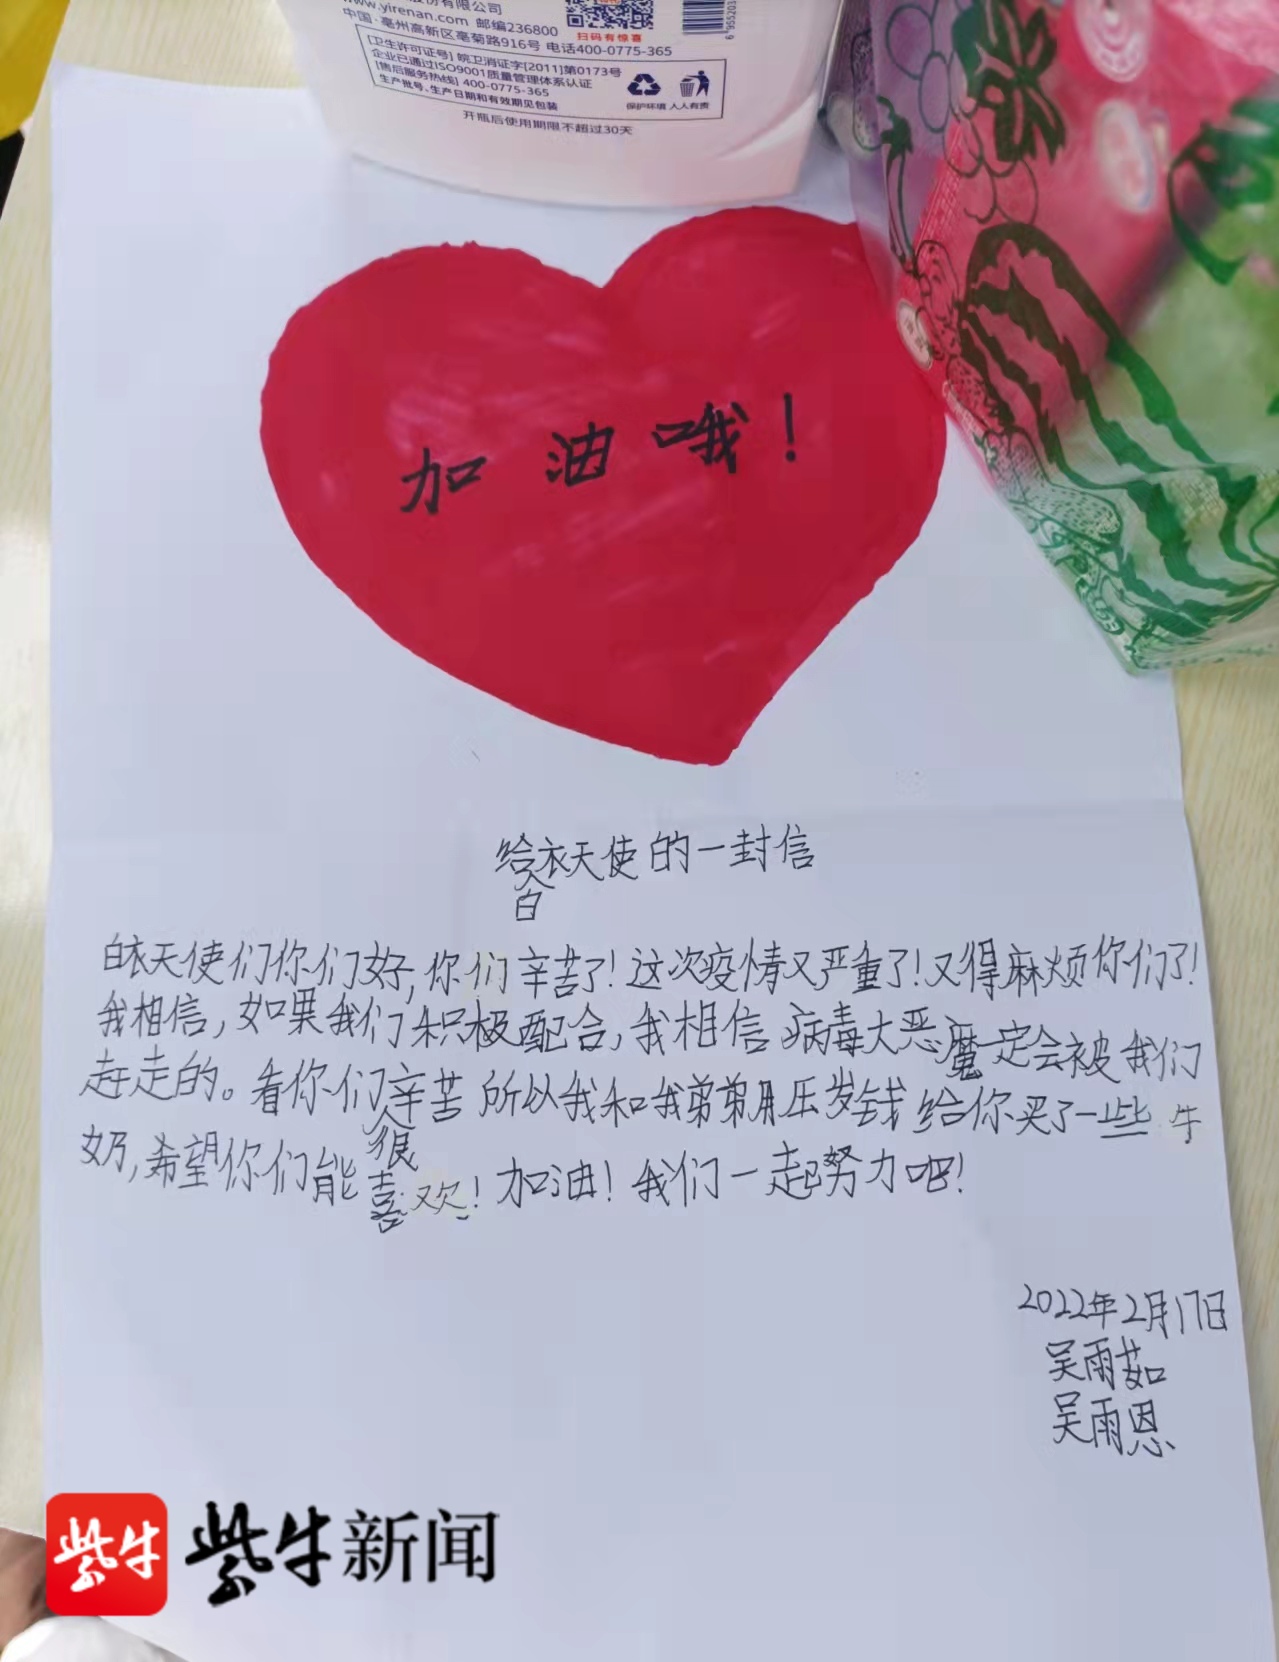 份有限公司
www.yirenan.com 邮编236800
中国·亳州高新区亳菊路916号 电话400-0775-365
扫码有惊喜
[卫生许可证号] 皖卫消证字(2011)第0173号
企业已通过ISO9001质量管理体系认证
[售后服务热线] 400-0775-365
生产批号、生产日期和有效期见包装
保护环境 人人有责
开瓶后使用期限不超过30天
加油哦!
给白衣天使的一封信
白衣天使们你们好,你们辛苦了!这次疫情又严重了!又得麻烦你们了!
我相信,如果我们积极配合,我相信病毒大恶魔一定会被我们
赶走的。看你们很辛苦所以我和我弟弟用压岁钱给你买了一些牛
奶,希望你们能喜欢!加油!我们一起努力吧!
2022年2月17日
吴雨茹
吴雨恩
紫牛
紫牛新闻